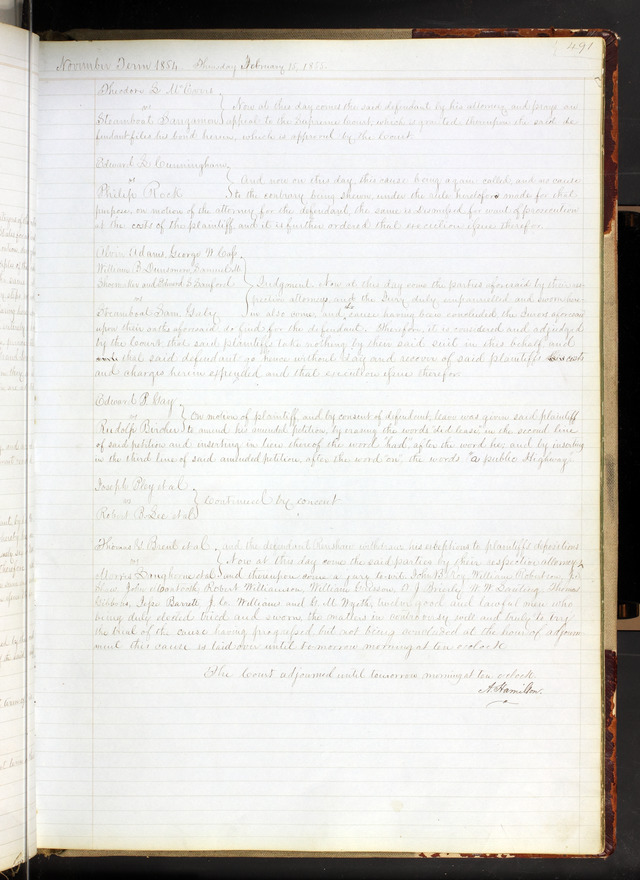 491
November Term 1854. Thursday February 15, 1855.
Theodore
vs } Now at this day comes the said defendant by his attorney and prays an
Steamboat Sangamon } appeal to the Supreme Court, which is granted said de
fendant files his bond herein, which is approved by the Court
Edward Cunningham
vs } And now on this day this cause being again called, and no cause
Philip Rock } to the contrary being shewn, under the rule heretofore made for that
purpose, on motion of the attorney for the defendant, the same is dismissed for want of prosecution
at the costs of the plaintiff, and it is further ordered that execution issue therefor.
Adams, George W.
William B. Dinsmore, Samuel M.
Shoemaker and Edward S. Sanford } Judgment. Now at this day come the parties aforesaid by their res-
vs } pective attorneys, and the Jury duly empannelled and sworn here
Steamboat Sam Gaty } in also come, and the cause having been concluded the Jurors aforesaid
upon their oaths aforesaid do find for the defendant. Therefore, it is considered and adjudged
by the Court that said plaintiffs take nothing by their said suit in this behalf and
that said defendant go hence without day and recover of said plaintiffs costs
and charges herein expended and that execution issue therefor.
Edward P.
vs } On motion of plaintiff, and by consent of defendant, leave was given said plaintiff
Rudolf Bircher } to amend his amended petition, by erasing the words "did lease" in the second line
of said petition and inserting in lieu thereof the word "had", after the word he, and by inserting
in the third line of said amended petition, after the word "on", the words "a public Highway"
Joseph et al
vs } Continued by consent
Robert B. Lee et al
Thomas Brent et al, and the defendant withdraw his exceptions to plaintiffs depositions
vs } Now at this day come the said parties by their respective attorneys
et al } and thereupon comes a jury to wit, John William
John Robert Williamson, William A. J. W. W. Thomas
Gibbons, Barrett, J. C. Williams and G. M. Wyeth, twelve good and lawful men who
being duly elected tried and sworn the matters in controversy well and truly to try
the trial of the cause having progressed but not being concluded at the hour of adjourn
ment this cause is laid over until tomorrow morning at ten oclock
The Court adjourned until tomorrow morning at ten oclock.
A. Hamilton.